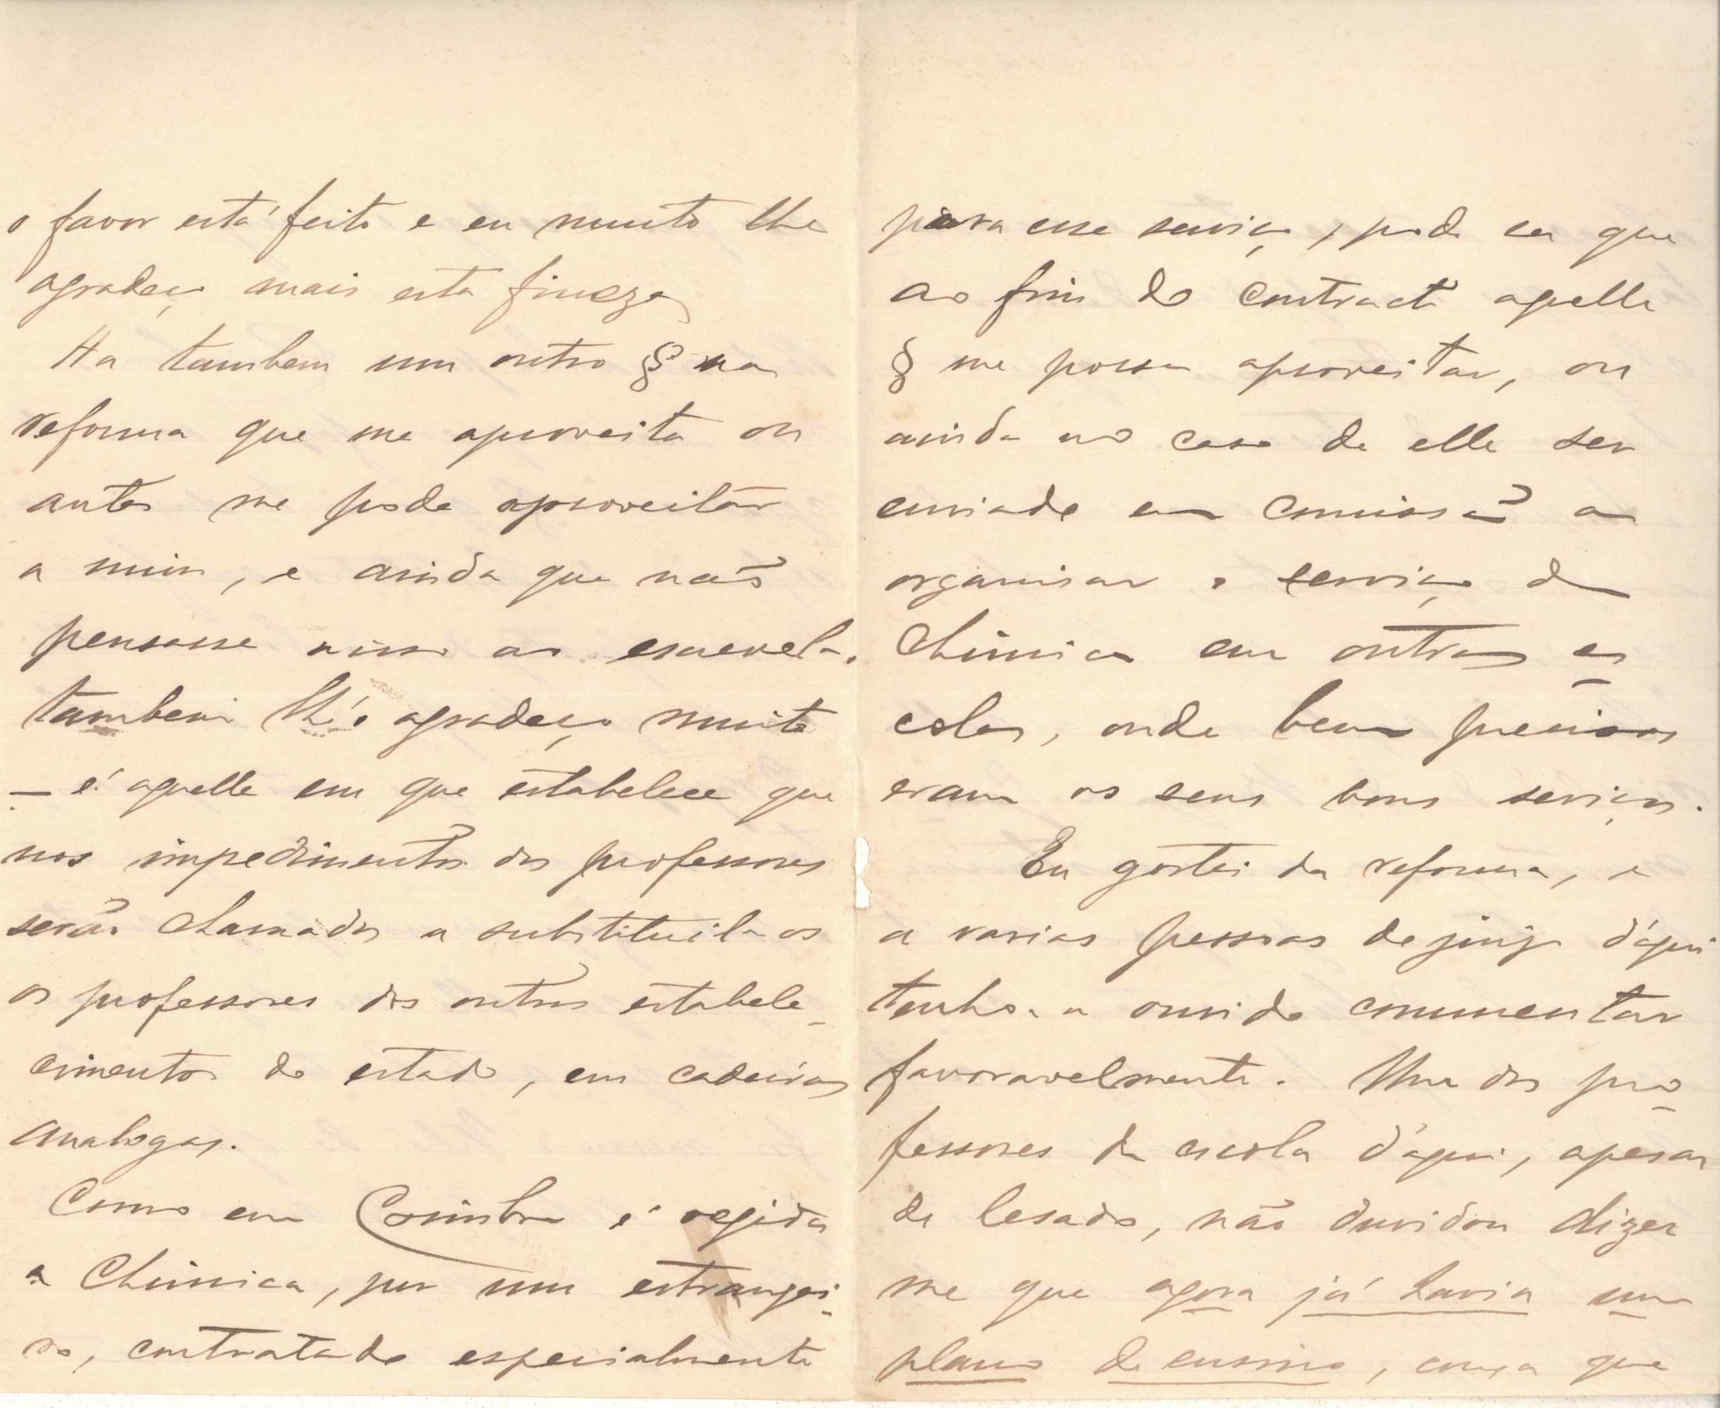 o favor está feito e eu muito lhe
agradeço mais esta fineza
Ha tambem um outro § na
reforma que me aproveita ou
antes me pode aproveitar
a mim, e ainda que não
pensasse nisso ao escrevel-o
tambem lh'o agradeço muito
— é aquelle em que estabelece que
nos impedimentos dos professores
serão chamados a substituil-os
os professores dos outros estabele-
cimentos do estado, em cadeiras
analogas.
Como em Coimbra é regida
a Chimica, por um estrangei-
ro, contratado especialmente
para esse serviço, pode ser que
ao fim do contracto aquelle
§ me possa aproveitar, ou
ainda no caso de elle ser
enviado em comissão a
organisar o serviço de
Chimica em outras es-
colas, onde bem precisos
eram os seus bons serviços.
Eu gostei da reforma, e
a varias pessoas de juizo d'aqui
tenho-a ouvido commentar
favoravelmente. Um dos pro-
fessores da escola d'aqui, apesar
de lesado, não duvidou dizer
me que agora já havia um
plano de ensino, cousa que